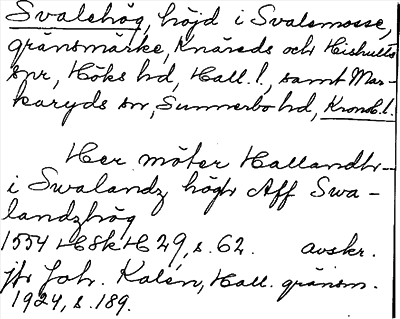 Svalehög, höjd i Svalemosse,
gränsmärke, Knäreds och Hishults
snr, Höks hd, Hall. l., samt Mar-
karyds sn, Sunnerbo hd, Kronob. l.
Her möter Hallandh-
i Swalandz högh Aff Swa-
landzhög
1554 HSkH 29, s. 62. avskr.
jfr Joh. Kalén, Hall. gränsm.
1924, s. 189.